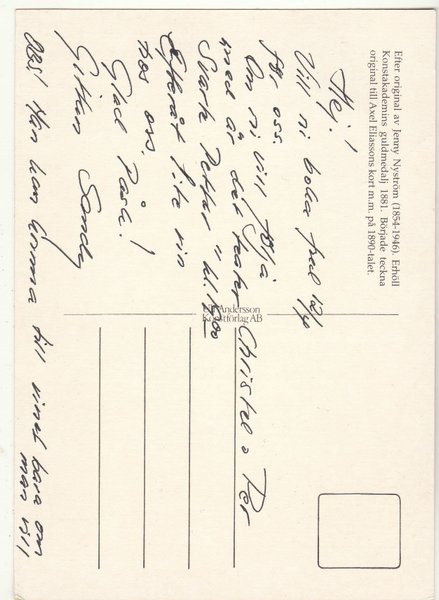 Efter original av Jenny Nyström (1854-1946). Erhöll
Konstakademins guldmedalj 1881. Började teckna
original till Axel Eliassons kort m.m. på 1890-talet.
Hej!
Vill ni boka 12/4
för oss.
Om ni vill följa
med är det teater
Svarta kl.
Efteråt lite vin
hos oss.
Glad Påsk!
Gittan
Obs! Man kan komma till vinet bara om
man vill
Andersson
Konstförlag AB
Christel o Per